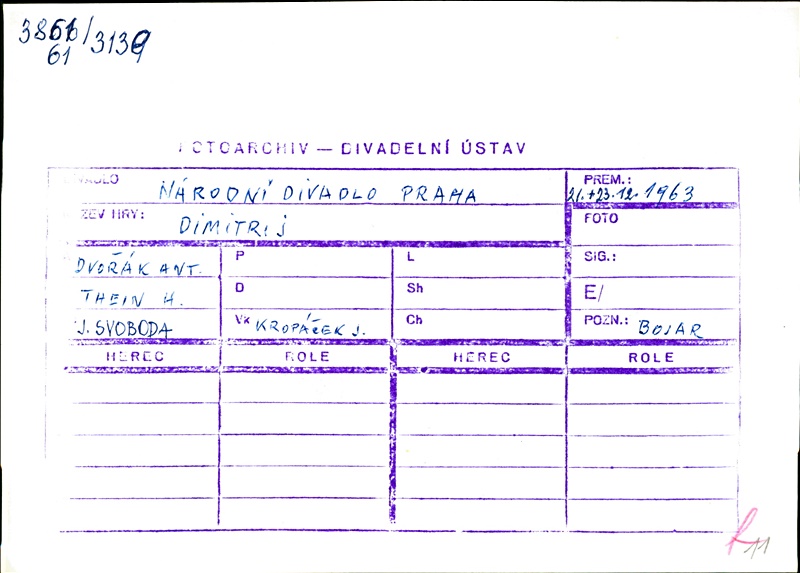 3139
61
FOTOARCHIV — DIVADELNÍ ÚSTAV
DIVADLO NÁRODNÍ DIVADLO PRAHA PREM.: 21.+23.12.1963
NÁZEV HRY: DIMITRIJ FOTO
DVOŘÁK ANT. P L SIG.:
THEIN H. D Sh E/
J. SVOBODA Vk KROPÁČEK J. Ch POZN.: BOJAR
HEREC ROLE HEREC ROLE
11